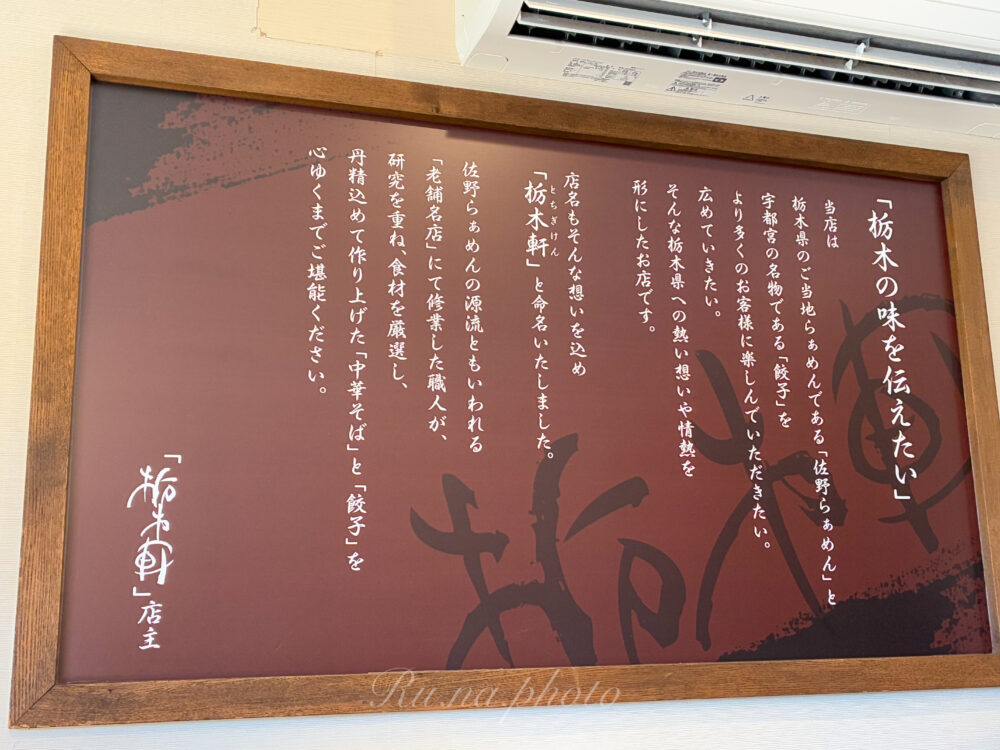 「栃木の味を伝えたい」
当店は
栃木県のご当地らぁめんである「佐野らぁめん」と
宇都宮の名物である「餃子」を
より多くのお客様に楽しんでいただきたい。
広めていきたい。
そんな栃木県への熱い想いや情熱を
形にしたお店です。
店名もそんな想いを込め
とちぎけん
「栃木軒」と命名いたしました。
佐野らぁめんの源流ともいわれる
「老舗名店」にて修業した職人が、
研究を重ね、食材を厳選し、
丹精込めて作り上げた「中華そば」と「餃子」を
心ゆくまでご堪能ください。
「栃木軒」店主
Ru.na.photo